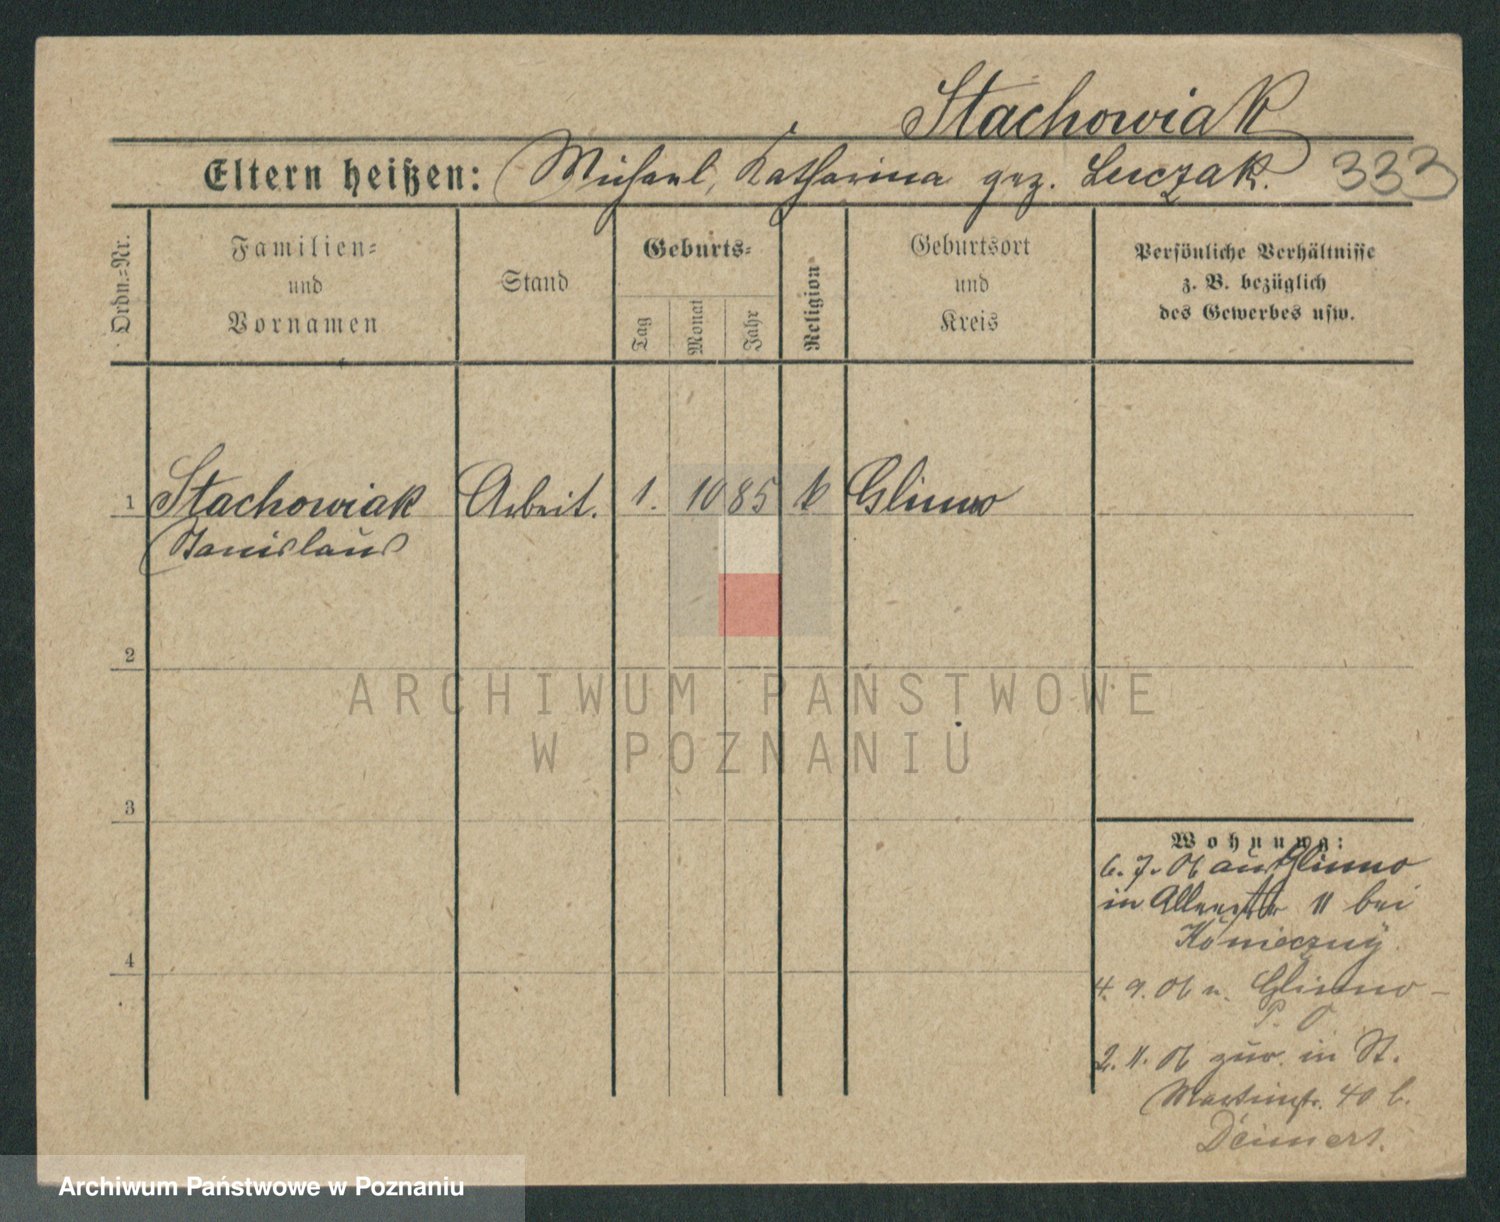 Stachowiak
Eltern heißen: Michael, Katharina gez. Luczak. 333
Ordn.=Nr.
Familien=
und
Vornamen
Stand
Geburts=
Tag
Monat
Jahr
Religion
Geburtsort
und
Kreis
Persönliche Verhältnisse
z. B. bezüglich
des Gewerbes usw.
1 Stachowiak Arbeit. 1. 10 85 k Glinno
Stanislaus
2
3
4
Wohnung:
6. 7. 06 aus Glinno
in 11 bei
Konieczny
4. 9. 06 n. Glinno -
P. O.
2. 11. 06 zur. in St.
Martinstr. 40 b.
ARCHIWUM PAŃSTWOWE
W POZNANIU
Archiwum Państwowe w Poznaniu